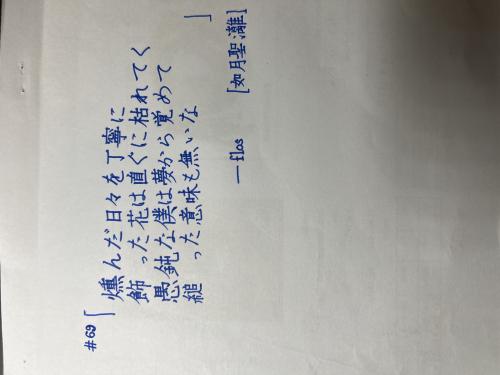 #69「
燻んだ日々を丁寧に
飾った花は直ぐに枯れてく
愚鈍な僕は夢から覚めて
縋った意味も無いな
」
— flos [如月聖灕]